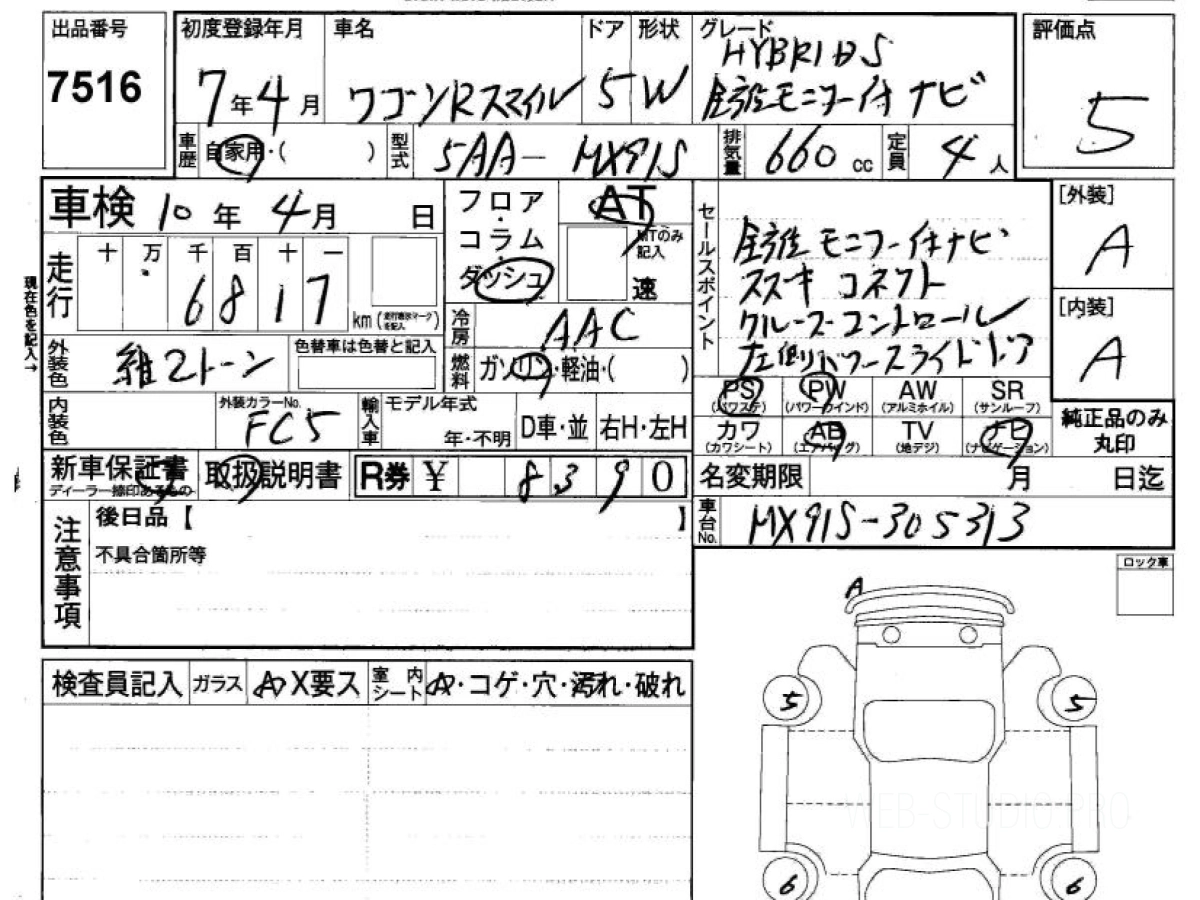 出品番号 初度登録年月 車名 ドア 形状 グレード 評価点
HYBRID S
7516 7年4月 ワゴンRスマイル 5 W 全方位モニター付ナビ 5
車歴 自家用・( ) 型式 5AA-MX91S 排気量 660cc 定員 4人
車検 10年4月 日 フロア・コラム・ダッシュ AT セールスポイント [外装]
MTのみ記入 速
全方位モニター付ナビ A
走行 十 万 千 百 十 一 スズキコネクト
6817 km(走行表示マークを記入) クルーズコントロール [内装]
現在色を記入→ 冷房 AAC 左側パワースライドドア A
外装色 2トーン 色替車は色替と記入 燃料 ガソリン・軽油・( )
PS(パワステ) PW(パワーウインド) AW(アルミホイル) SR(サンルーフ)
内装色 外装カラーNo. FC5 輸入車 モデル年式 年・不明 D車・並 右H・左H
カワ(カワシート) AB(エアバッグ) TV(地デジ) ナビ(ナビゲーション) 純正品のみ丸印
新車保証書 ディーラー捺印あるもの 取扱説明書 R券 ¥ 8390 名変期限 月 日迄
注意事項 後日品【 】 車台No. MX91S-305313
不具合箇所等
ロック車
A
検査員記入 ガラス A・X要ス 室内シート A・コゲ・穴・汚れ・破れ
5 5
WEB-STUDIO.PRO
6 6